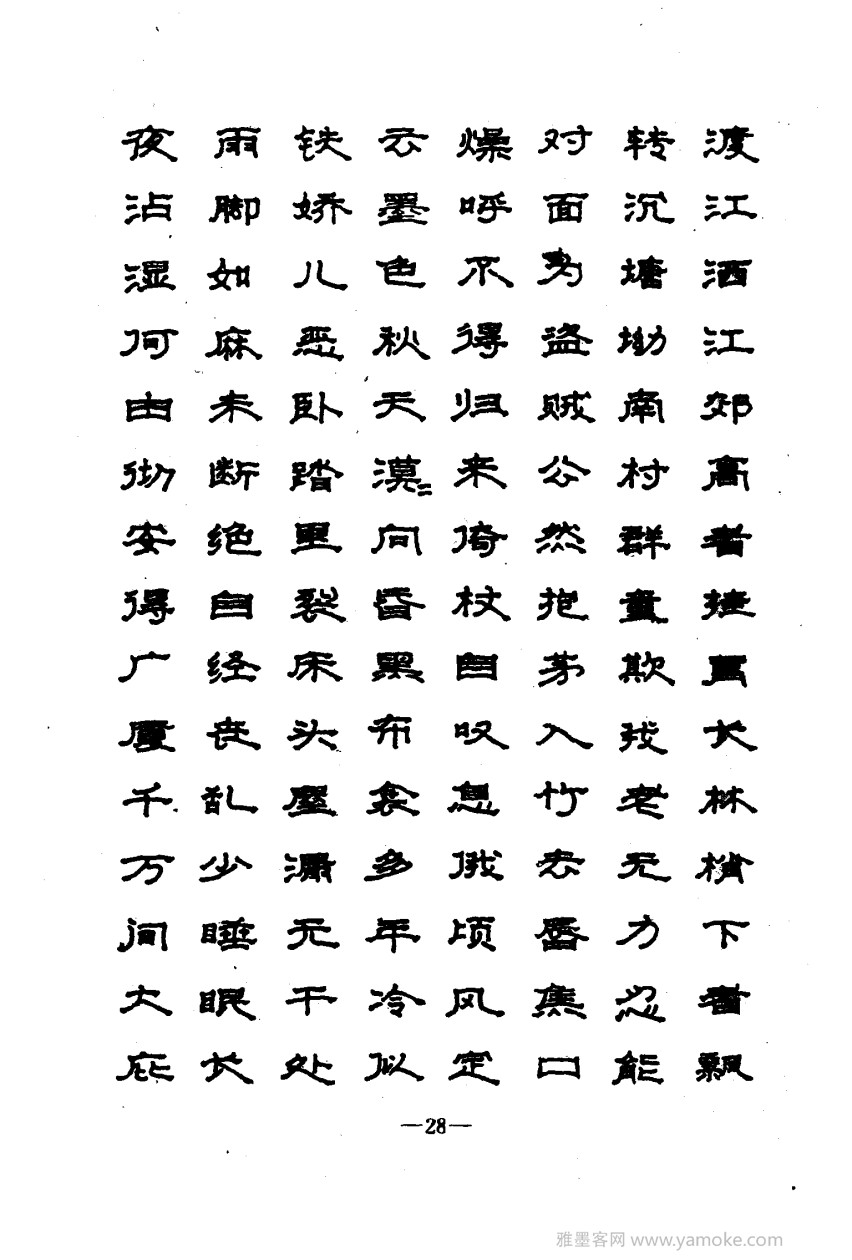 渡江洒江郊高者挂罥长林梢下者飘
转沉塘坳南村群童欺我老无力忍能
对面为盗贼公然抱茅入竹去唇焦口
燥呼不得归来倚杖自叹息俄顷风定
云墨色秋天漠〻向昏黑布衾多年冷似
铁娇儿恶卧踏里裂床头屋漏无干处
雨脚如麻未断绝自经丧乱少睡眠长
夜沾湿何由彻安得广厦千万间大庇
—28—
雅墨客网 www.yamoke.com